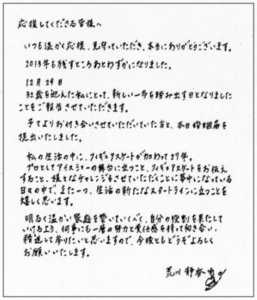 応援してくださる皆様へ
いつも温かく応援、見守っていただき、本当にありがとうございます。
2013年も残すところあとわずかになりました。
12月29日
32歳を迎えた私にとって、新しい一歩を踏み出す日となりました
ことをご報告させていただきます。
予てよりお付き合いさせていただいていた方と、本日婚姻届を
提出いたしました。
私の生活の中に、フィギュアスケートが加わって27年。
プロとしてアイスショーの舞台に立つこと、フィギュアスケートをお伝え
すること、様々なチャレンジをさせていただくことに夢中になっている
日々の中で、また一つ、生活の新たなスタートラインに立つことを
嬉しく思います。
明るく温かい家庭を築いていくべく、自分の役割を果たして
いけるよう、何事にも一層の努力と責任感を持って向き合い
精進して参りたいと思いますので、今後ともどうぞよろしく
お願いいたします。
荒川静香